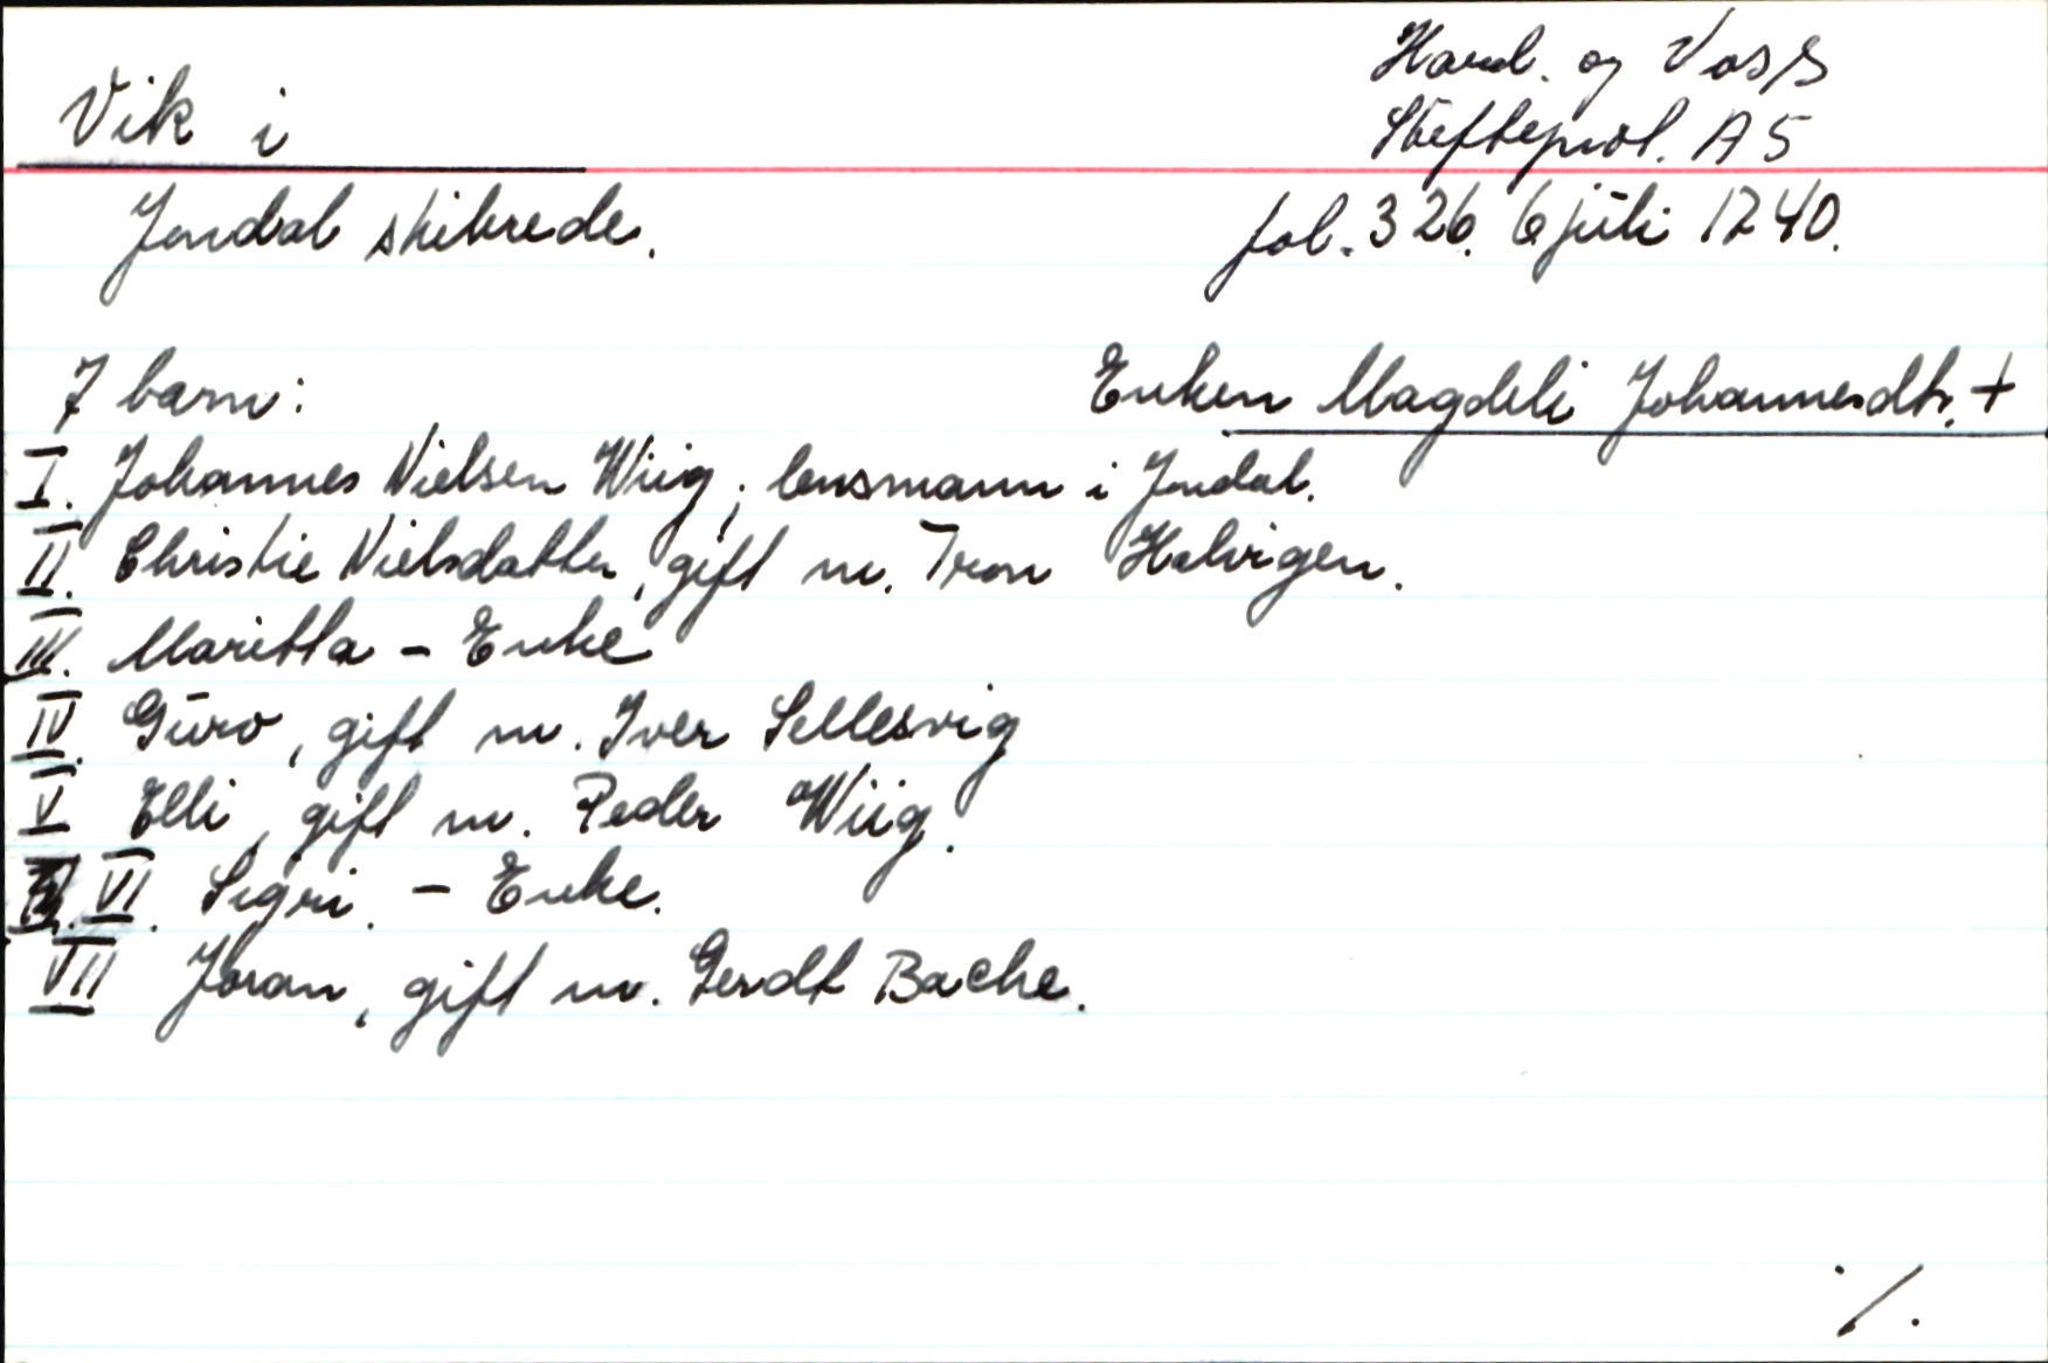 Vik i
Jondal skibrede.
Hard. og Voss
Skifteprot. A5
fol. 326. 6 juli 1740.
7 barn:
Enken Magdeli Johannesdtr. +
I. Johannes Nielsen Wiig, lensmann i Jondal.
II. Christie Nielsdatter, gift m. Tron Halvigen.
III. Maritta - Enke
IV. Guro, gift m. Iver Sellesvig
V Elli, gift m. Peder Wiig.
VI. Sigri. - Enke.
VII Joran, gift m. Gerdt Bache.
./.